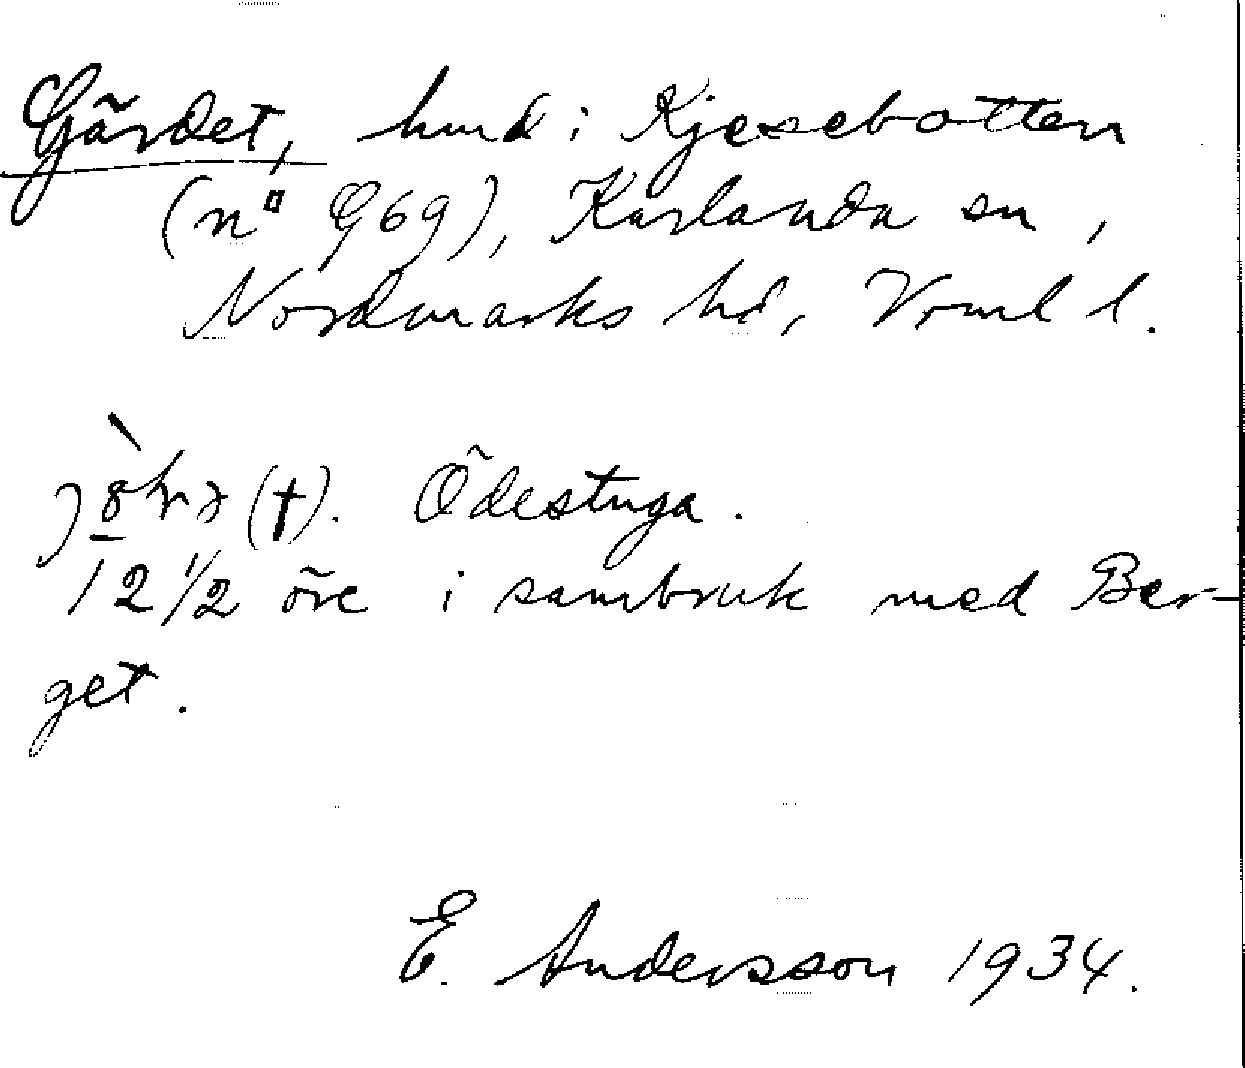 Gärdet, hmd i Kjesebotten
(nº G69), Karlanda sn,
Nordmarks hd, Vrml l.
(†). Ödestuga.
12 1/2 öre i sambruk med Ber-
get.
E. Andersson 1934.